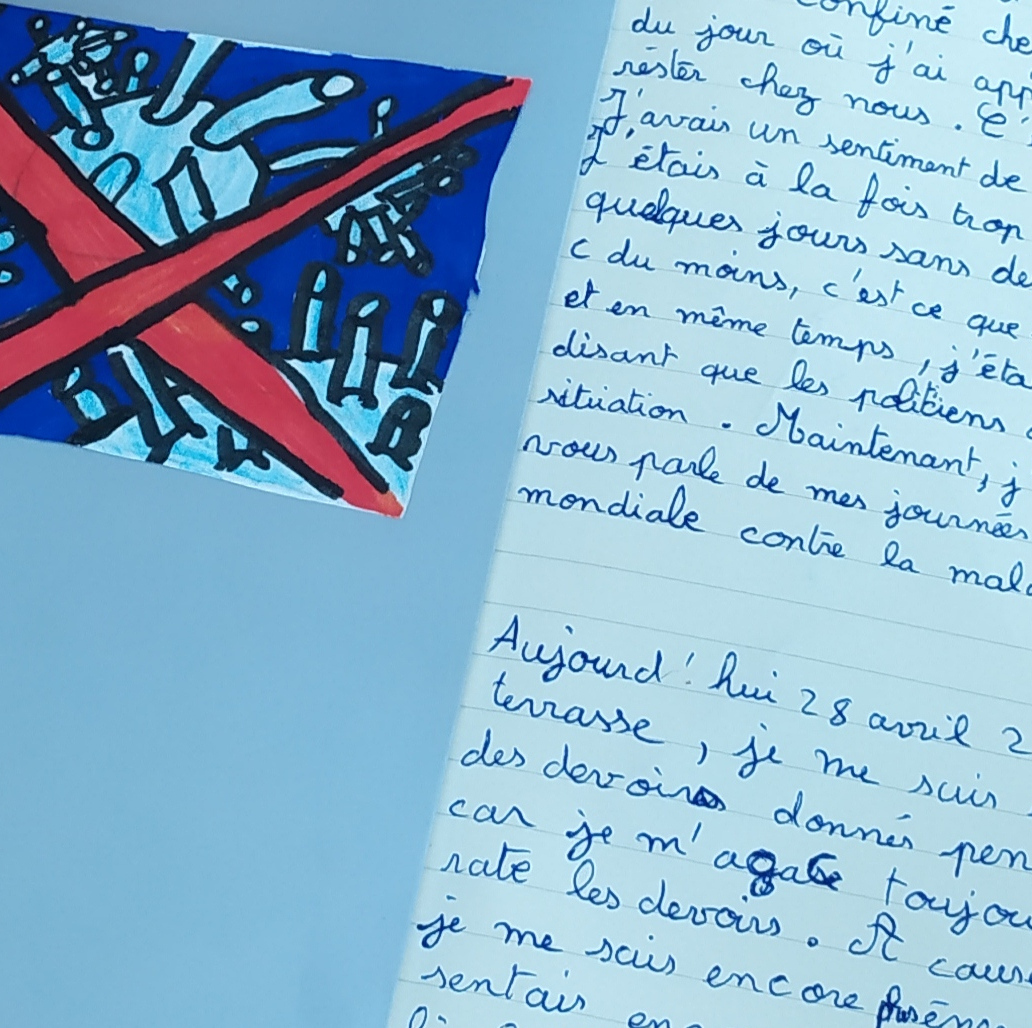 confiné che
du jour où j'ai app
réster chez nous. C'
J'avais un sentiment de
J'étais à la fois trop
quelques jours sans de
c du moins, c'est ce que
et en même temps, j'éta
disant que les politiens
situation. Maintenant, j
vous parle de mes journées
mondiale contre la mala
Aujourd'hui 28 avril 2
terrasse, je me suis
des devoirs donnés pen
car je m'agace toujou
rate les devoirs. A cause
je me suis encore
sentais en